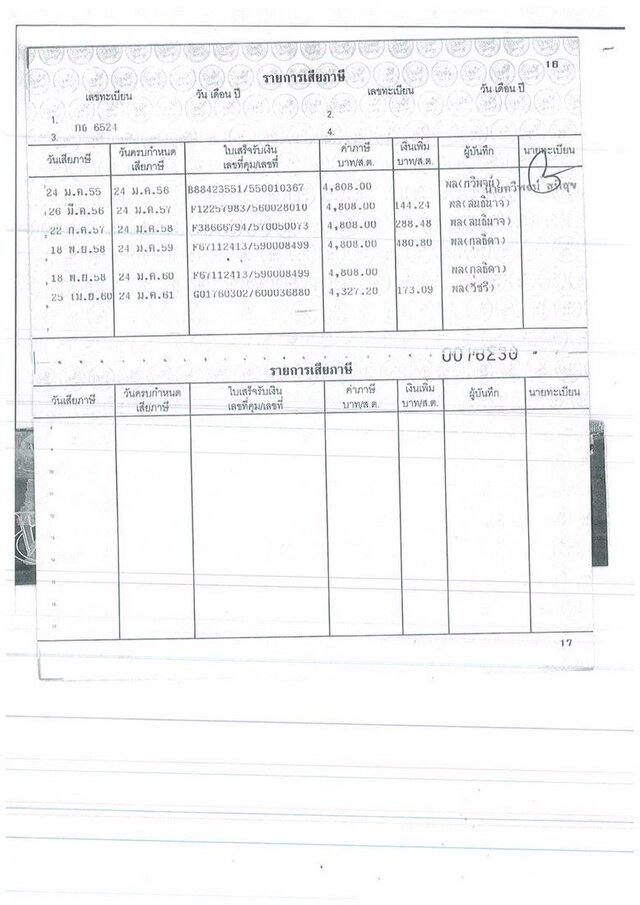 16
รายการเสียภาษี
เลขทะเบียน วัน เดือน ปี เลขทะเบียน วัน เดือน ปี
1. 2.
กธ 6524
3. 4.
วันเสียภาษี วันครบกำหนดเสียภาษี ใบเสร็จรับเงิน เลขที่คุม/เลขที่ ค่าภาษี บาท/ส.ต. เงินเพิ่ม บาท/ส.ต. ผู้บันทึก นายทะเบียน
24 ม.ค.55 24 ม.ค.56 B88423551/550010367 4,808.00
26 มี.ค.56 24 ม.ค.57 F12257983/560028010 4,808.00 144.24
22 ก.ค.57 24 ม.ค.58 F38666794/570050073 4,808.00 288.48
18 พ.ย.58 24 ม.ค.59 F67112413/590008499 4,808.00 480.80 พล(กุลธิดา)
18 พ.ย.58 24 ม.ค.60 F67112413/590008499 4,808.00 พล(กุลธิดา)
25 เม.ย.60 24 ม.ค.61 G01760302/600036880 4,327.20 173.09 พล(วัชรี)
0076230
รายการเสียภาษี
วันเสียภาษี วันครบกำหนดเสียภาษี ใบเสร็จรับเงิน เลขที่คุม/เลขที่ ค่าภาษี บาท/ส.ต. เงินเพิ่ม บาท/ส.ต. ผู้บันทึก นายทะเบียน
17